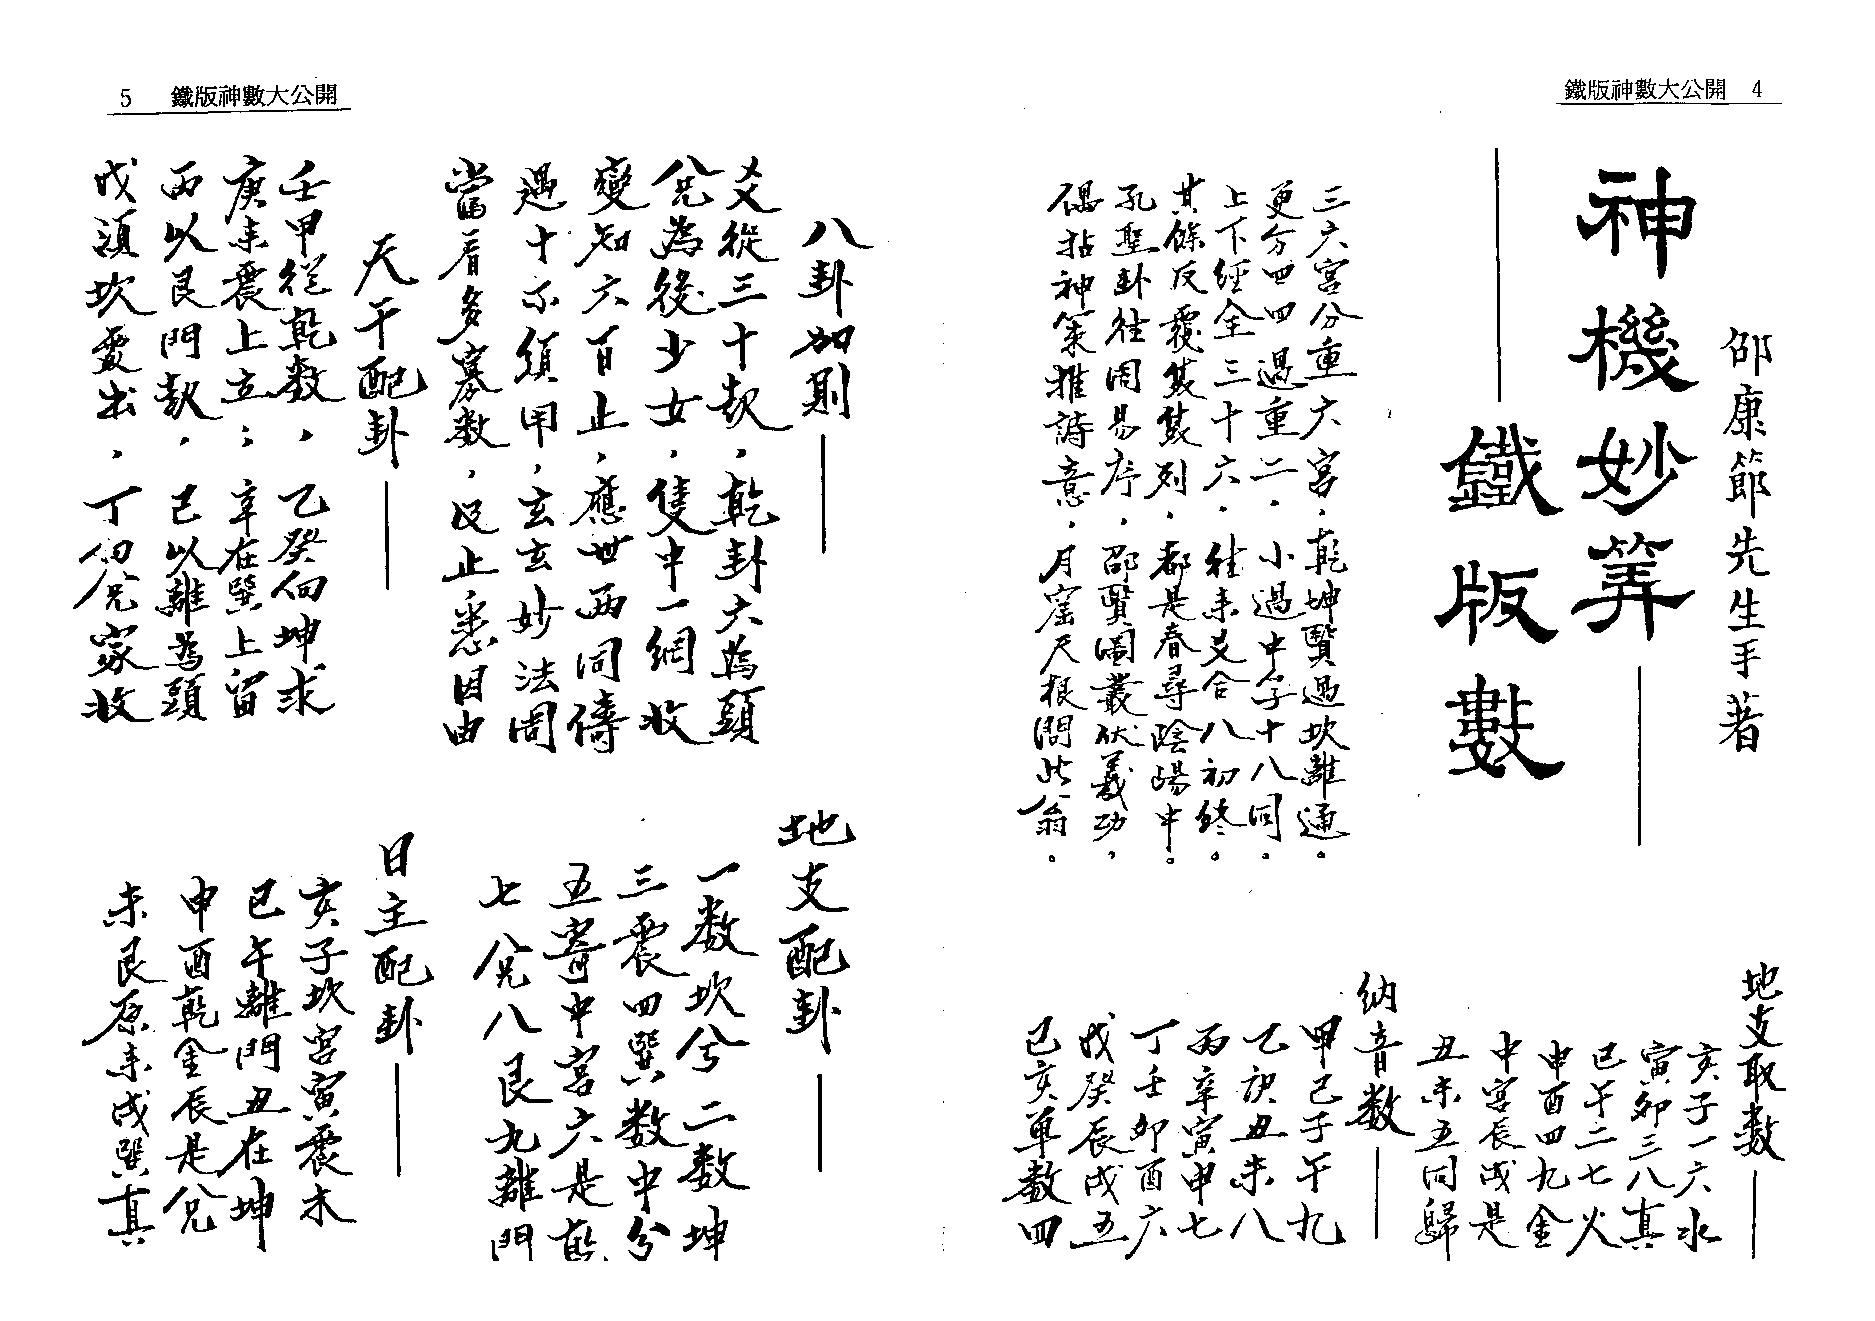 鐵版神數大公開 4
邵康節先生手著
神機妙算
鐵版數
三六宮分重六宮，乾坤賢過坎離通。
更分四四過重二，小過中孚十八同。
上下經全三十六，往來爻合八初終。
其餘反覆裝裝列，都是春尋陰陽中。
孔聖卦往周易序，邵賢圖叢伏羲功，
偶拈神策推詩意，月窟天根問此翁。
地支取數
亥子一六水
寅卯三八真
巳午二七火
申酉四九金
中宮辰戌是
丑未五同歸
納音數
甲己子午九
乙庚丑未八
丙辛寅申七
丁壬卯酉六
戊癸辰戌五
巳亥單數四
5 鐵版神數大公開
八卦加則
爻從三十起，乾卦大為頭
兌為後少女，隻中一網收
變知六百止，應世兩同儔
遇十不須用，玄玄妙法周
當看多寡數，起止悉因由
天干配卦
壬甲從乾數，乙癸向坤求
庚來震上立；辛在巽上留
丙以艮門起，己以離為頭
戊須坎處出，丁向兌家收
地支配卦
一數坎兮二數坤
三震四巽數中分
五寄中宮六是乾
七兌八艮九離門
日主配卦
亥子坎宮寅震木
巳午離門丑在坤
申酉乾金辰是兌
未艮原來戌巽真